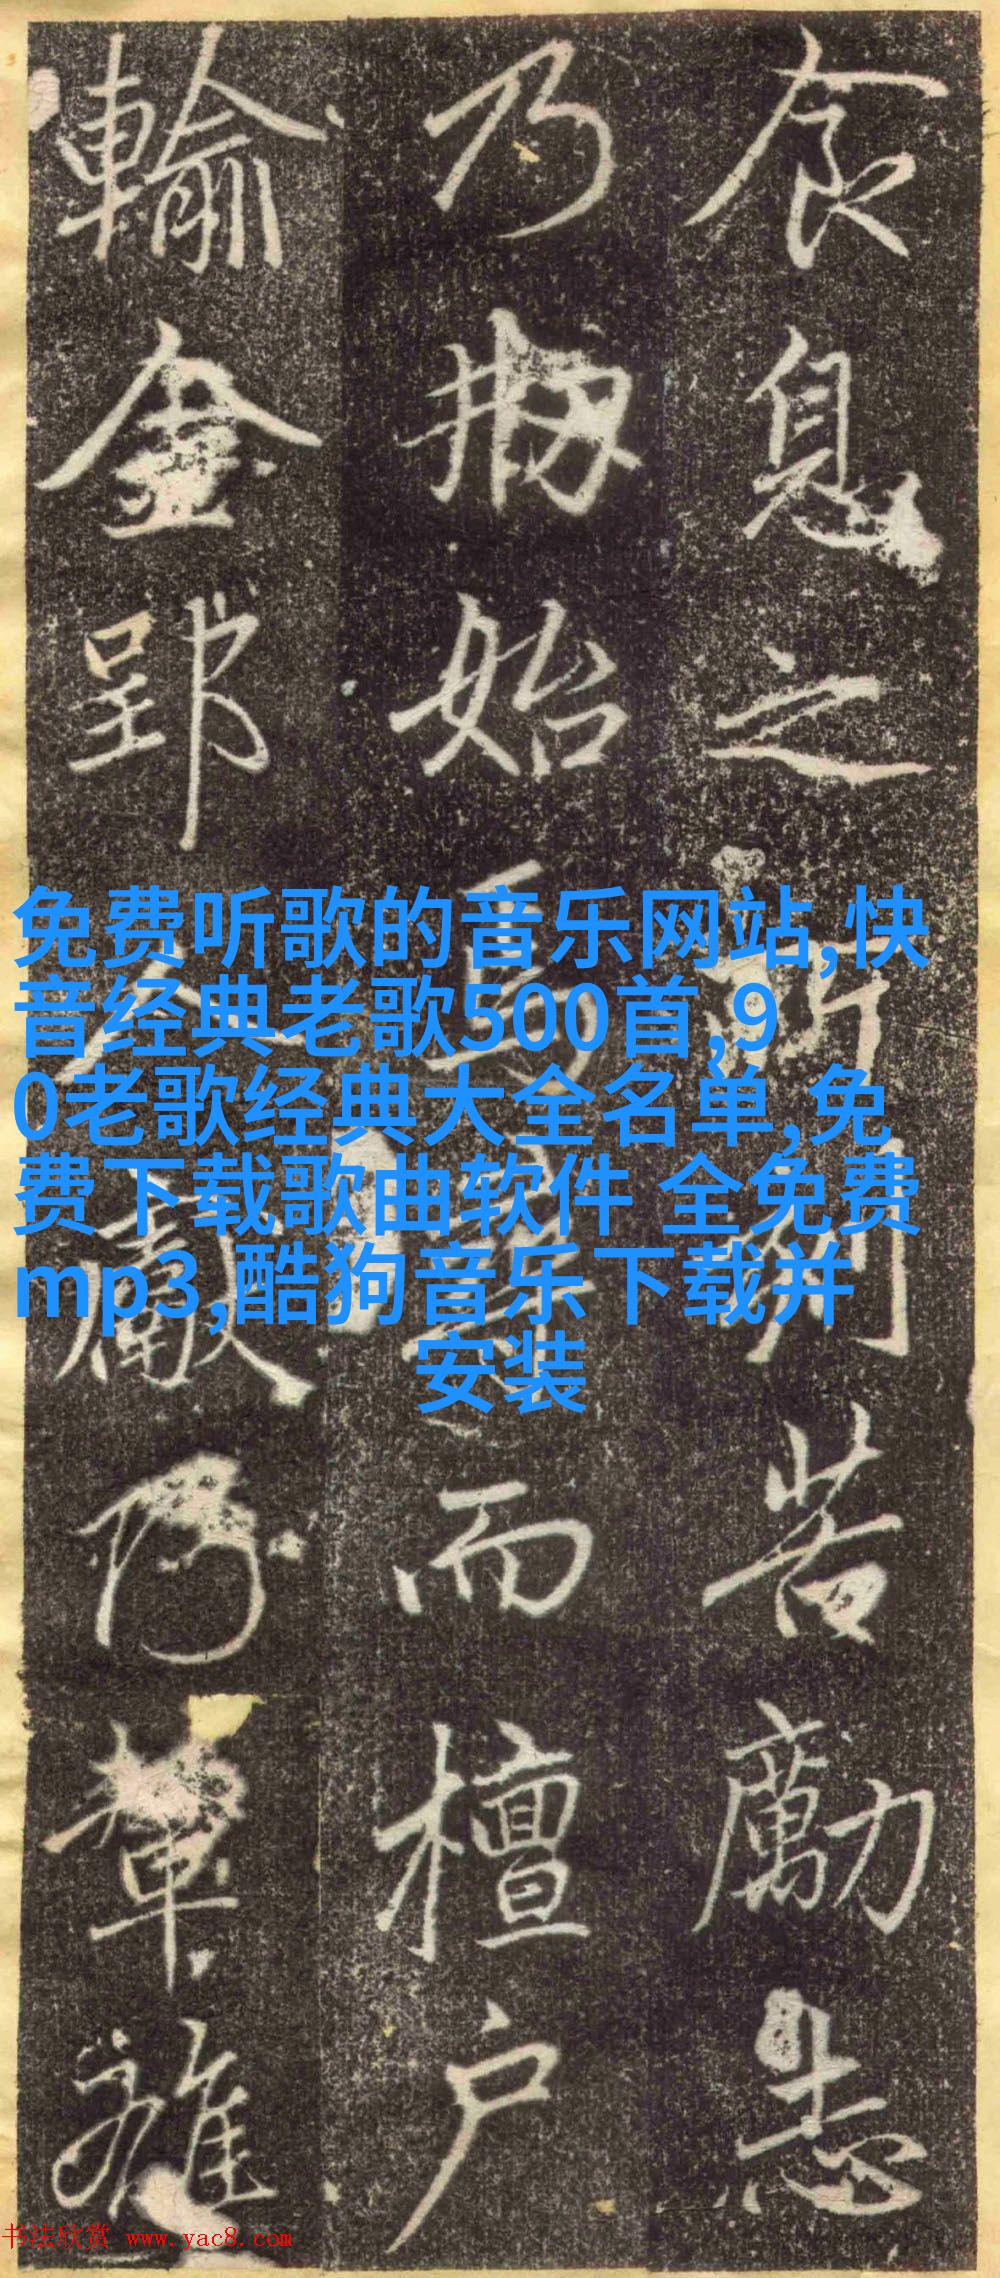 食息之所刊苦勵志
乃物始
而檀户
輸金郢
鄉輦雖
免费听歌的音乐网站,快
音经典老歌500首,9
0老歌经典大全名单,免
费下载歌曲软件 全免费
mp3,酷狗音乐下载并
安装
书法欣赏 www.yac8.com